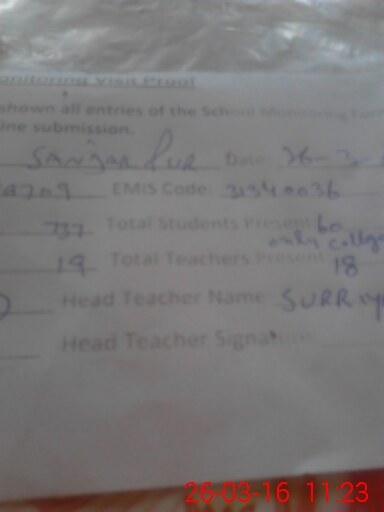 onitoring Visit Proof
shown all entries of the School Monitoring Form
ine submission.
SANJAR PUR Date 26-3-
EMIS Code: 31340036
737 Total Students Present 60
only college
19 Total Teachers Present 18
Head Teacher Name SURRIY
Head Teacher Signature
26-03-16 11:23